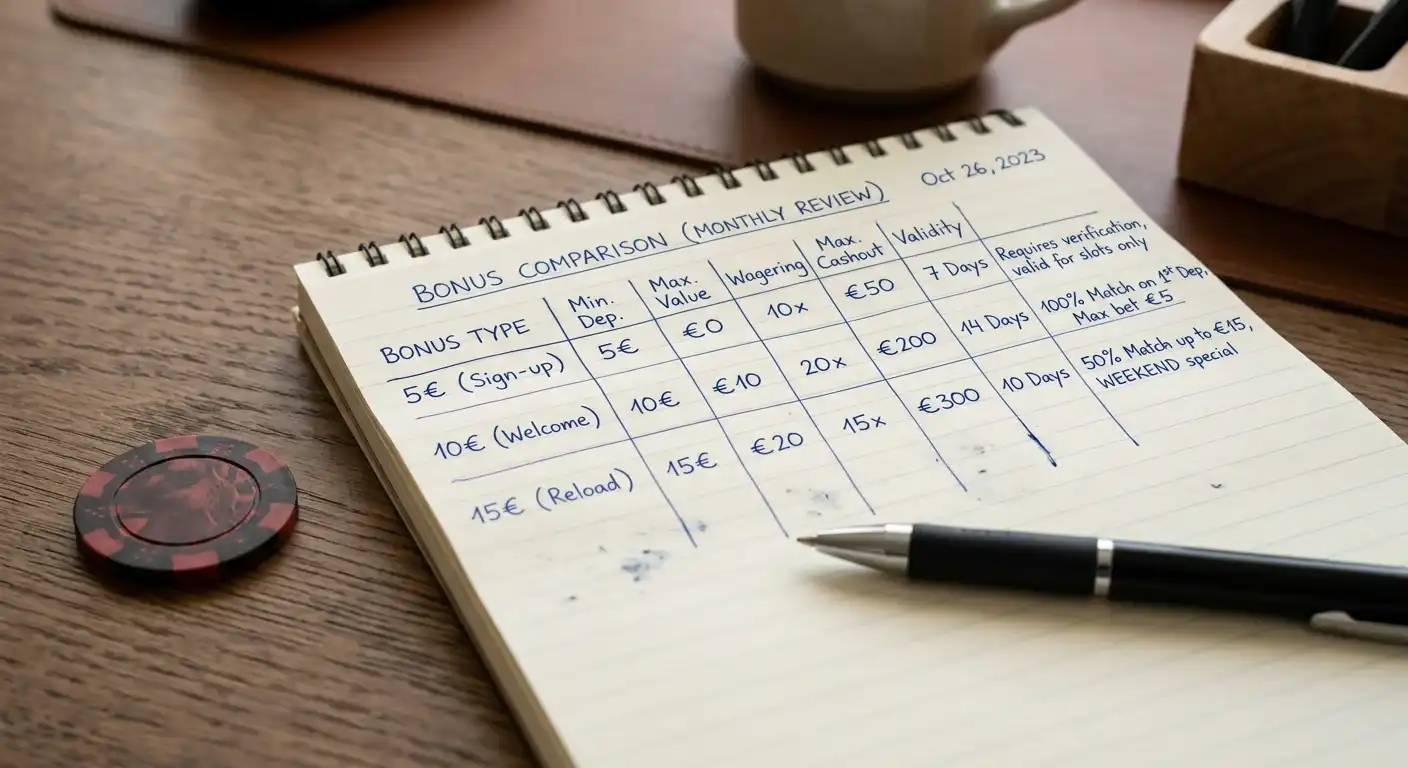 BONUS COMPARISON (MONTHLY REVIEW) Oct 26, 2023
BONUS TYPE Min. Dep. Max. Value Wagering Max. Cashout Validity
5€ (Sign-up) 5€ €0 10x €50 7 Days Requires verification, valid for slots only
10€ (Welcome) 10€ €10 20x €200 14 Days 100% Match on 1st Dep, Max bet €5
15€ (Reload) 15€ €20 15x €300 10 Days 50% Match up to €15, WEEKEND special